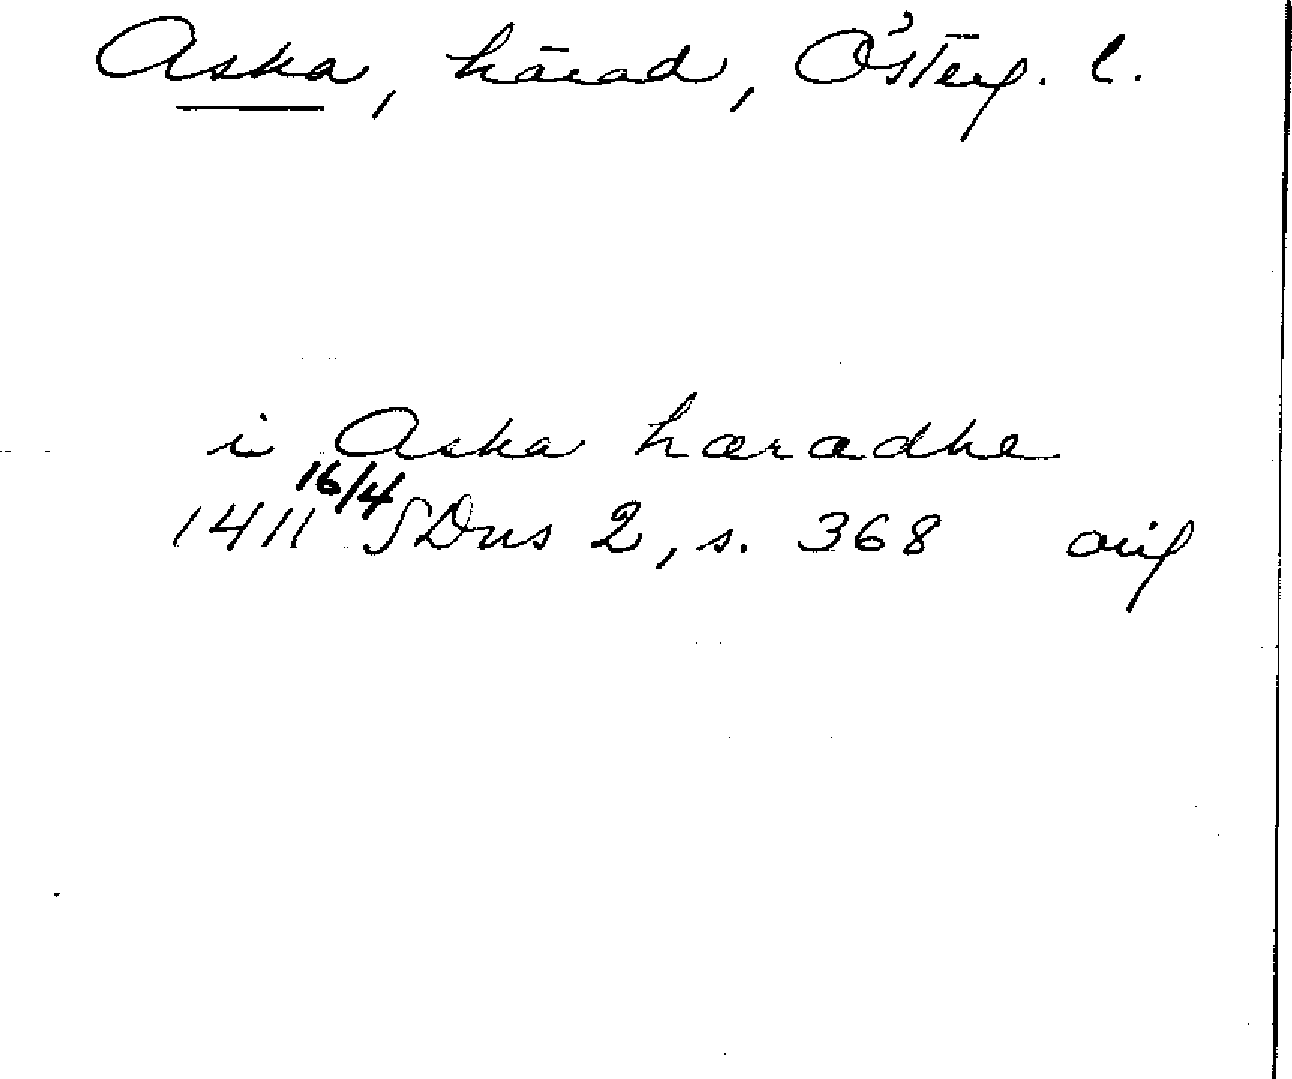 Aska, härad, Österg. l.
i Aska hæradhe
1411 16/4 SDns 2, s. 368 orig